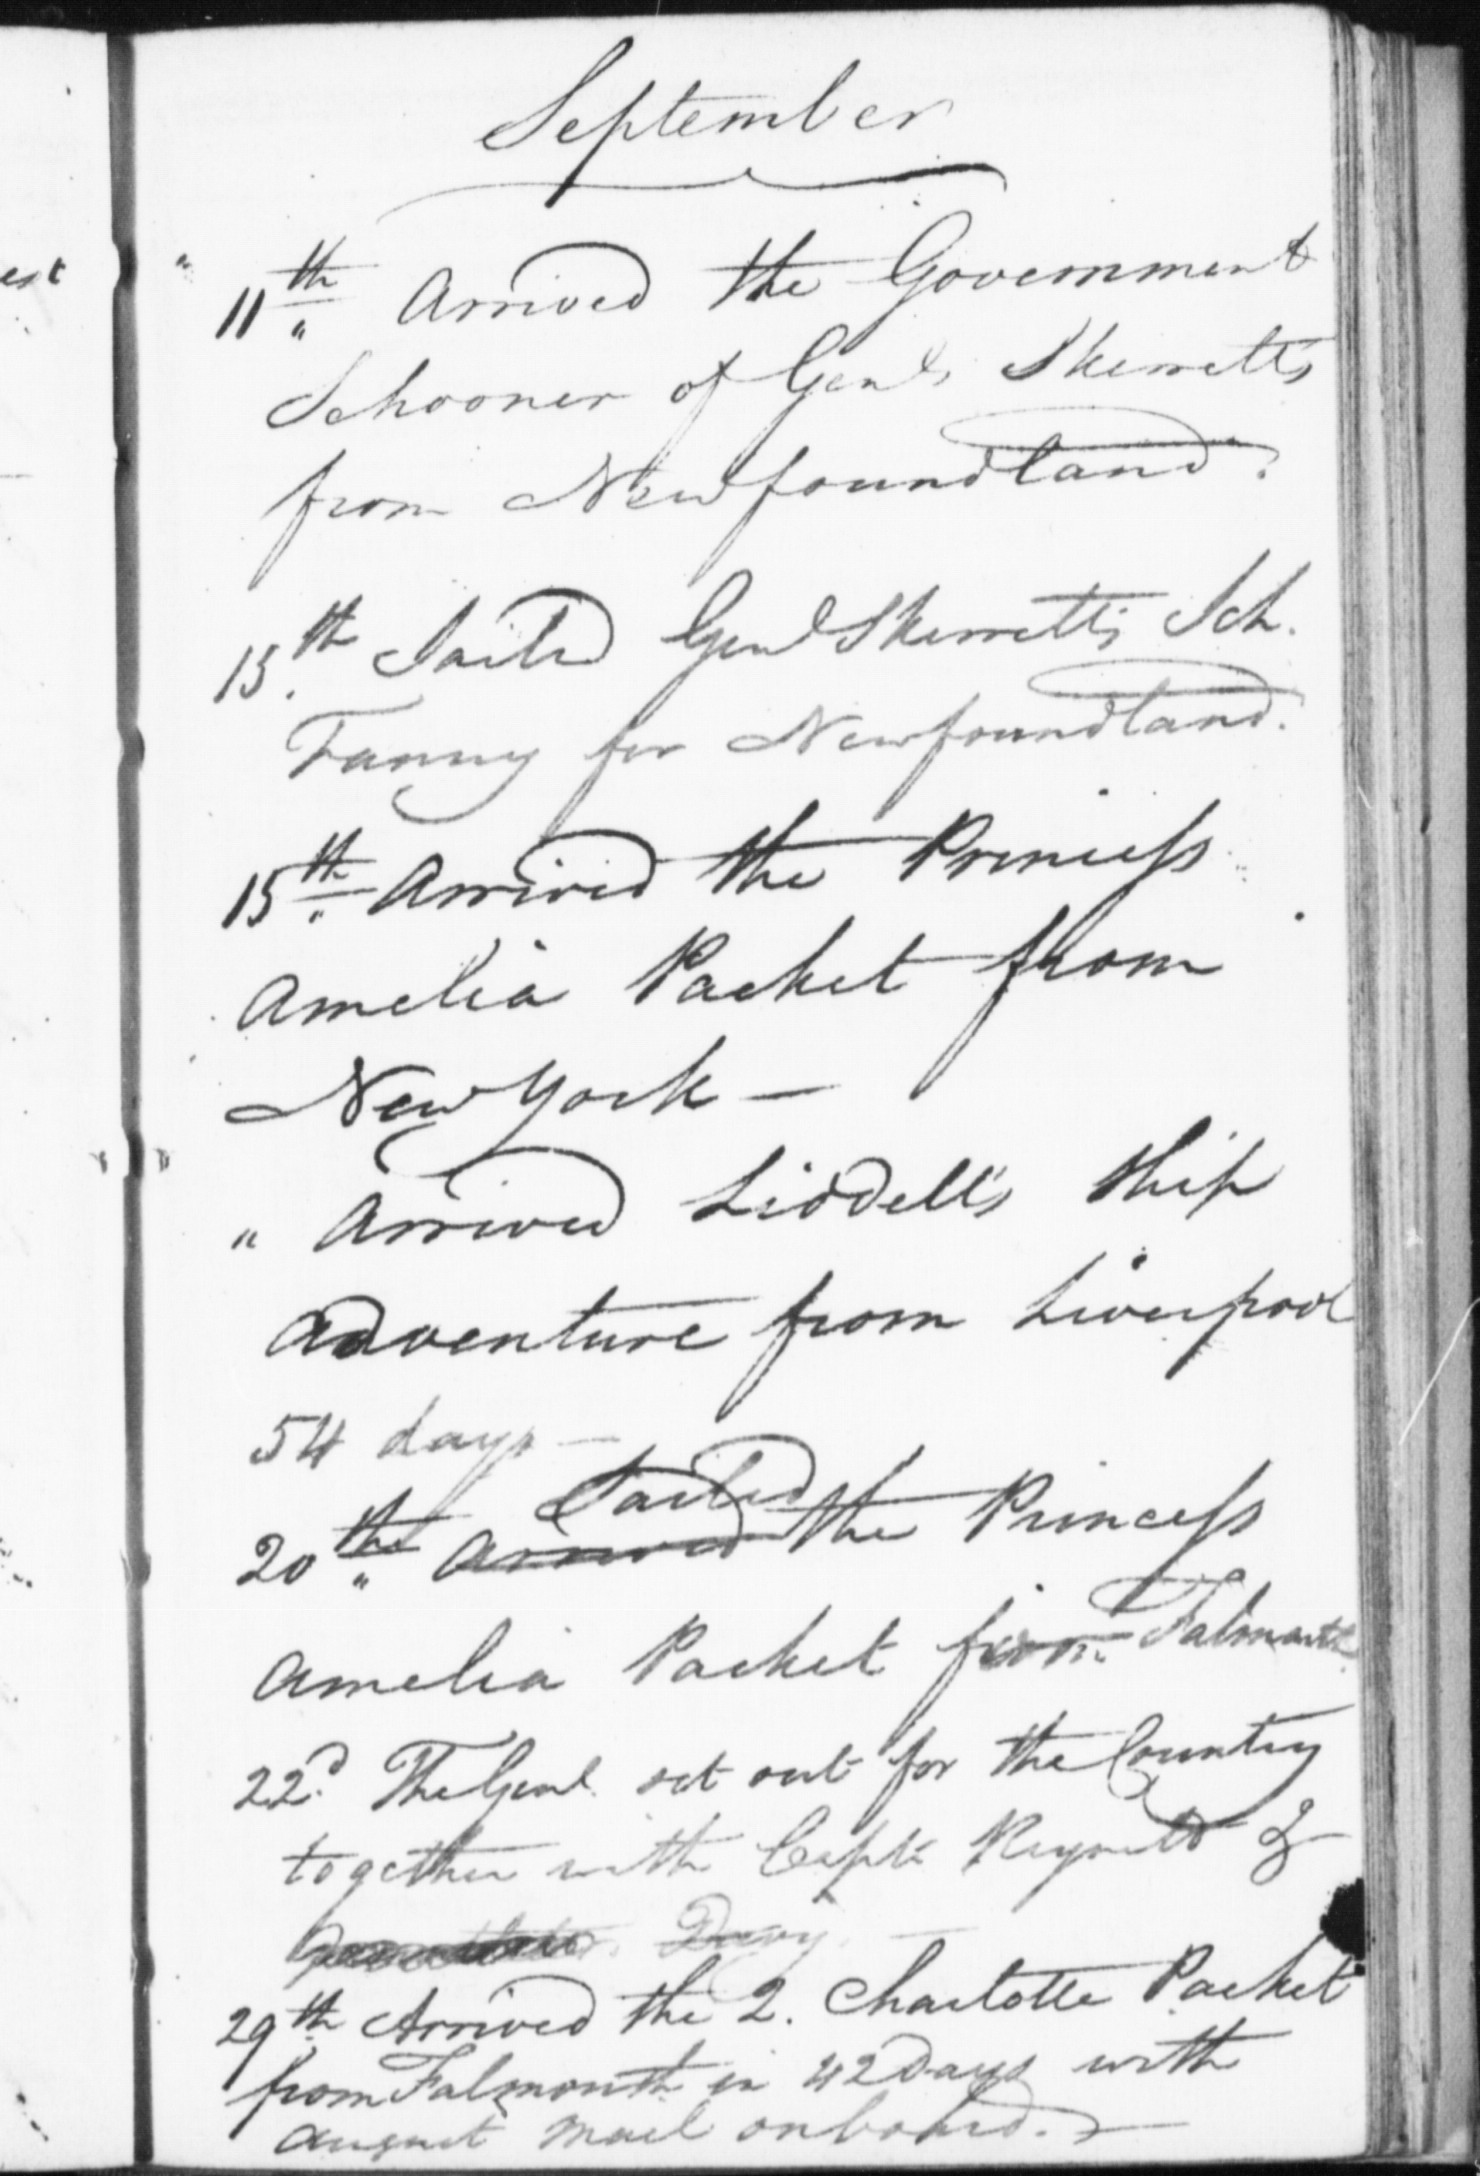 September
11th Arrived the Government
Schooner of Genl. Skerrett's
from Newfoundland.
15th Sailed Genl Skerrett's Sch.
Fanny for Newfoundland.
15th Arrived the Princess
Amelia Packet from
New York —
" Arrived Liddell's Ship
Adventure from Liverpool
54 days —
20th Sailed Arrived the Princess
Amelia Packet from Falmouth
22d. The Genl. set out for the Country
together with Capt. &
Davy. —
29th Arrived the Q. Charlotte Packet
from Falmouth in 42 Days with
August Mail onboard. —
est